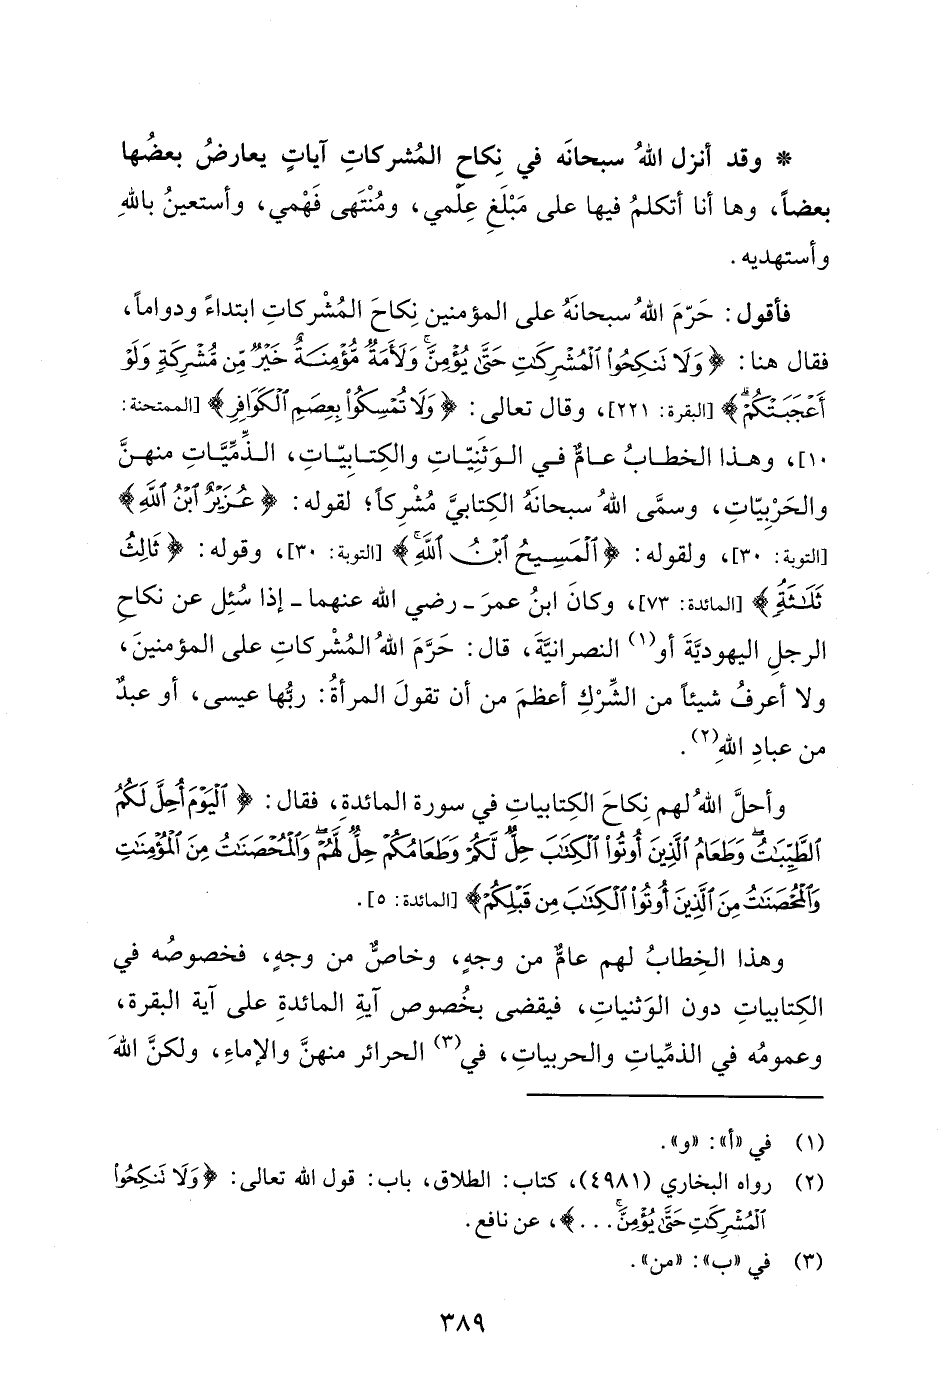 * وقد أنزل اللهُ سبحانَه في نِكاحِ المُشركاتِ آياتٍ يعارضُ بعضُها
بعضاً، وها أنا أتكلمُ فيها على مَبْلَغِ عِلْمي، ومُنْتَهى فَهْمي، وأستعينُ باللهِ
وأستهديه.
فأقول: حَرّمَ اللهُ سبحانَهُ على المؤمنين نِكاحَ المُشْركاتِ ابتداءً ودواماً،
فقال هنا: ﴿وَلَا تَنكِحُوا۟ ٱلْمُشْرِكَٰتِ حَتَّىٰ يُؤْمِنَّ ۚ وَلَأَمَةٌ مُّؤْمِنَةٌ خَيْرٌ مِّن مُّشْرِكَةٍ وَلَوْ
أَعْجَبَتْكُمْ ۗ﴾ [البقرة: ٢٢١]، وقال تعالى: ﴿وَلَا تُمْسِكُوا۟ بِعِصَمِ ٱلْكَوَافِرِ﴾ [الممتحنة:
١٠]، وهـذا الخطـابُ عـامٌّ فـي الـوَثَنِيّـاتِ والكِتـابِيّـاتِ، الـذِّمِّيَّـاتِ منهـنَّ
والحَرْبِيّاتِ، وسمَّى اللهُ سبحانَهُ الكِتابيَّ مُشْركاً؛ لقوله: ﴿عُزَيْرٌ ٱبْنُ ٱللَّهِ﴾
[التوبة: ٣٠]، ولقوله: ﴿ٱلْمَسِيحُ ٱبْنُ ٱللَّهِ ۚ﴾ [التوبة: ٣٠]، وقوله: ﴿ثَالِثُ
ثَلَٰثَةٍ ۘ﴾ [المائدة: ٧٣]، وكانَ ابنُ عمرَ ـ رضي الله عنهما ـ إذا سُئِل عن نكاحِ
الرجلِ اليهوديَّةَ أو(١) النصرانيَّةَ، قال: حَرَّمَ اللهُ المُشْركاتِ على المؤمنينَ،
ولا أعرفُ شيئاً من الشِّرْكِ أعظمَ من أن تقولَ المرأةُ: ربُّها عيسى، أو عبدٌ
من عبادِ اللهِ(٢).
وأحلَّ اللهُ لهم نِكاحَ الكِتابياتِ في سورة المائدةِ، فقال: ﴿ٱلْيَوْمَ أُحِلَّ لَكُمُ
ٱلطَّيِّبَٰتُ ۖ وَطَعَامُ ٱلَّذِينَ أُوتُوا۟ ٱلْكِتَٰبَ حِلٌّ لَّكُمْ وَطَعَامُكُمْ حِلٌّ لَّهُمْ ۖ وَٱلْمُحْصَنَٰتُ مِنَ ٱلْمُؤْمِنَٰتِ
وَٱلْمُحْصَنَٰتُ مِنَ ٱلَّذِينَ أُوتُوا۟ ٱلْكِتَٰبَ مِن قَبْلِكُمْ﴾ [المائدة: ٥].
وهذا الخِطابُ لهم عامٌّ من وجهٍ، وخاصٌّ من وجهٍ، فخصوصُه في
الكِتابياتِ دون الوَثنياتِ، فيقضى بخُصوص آيةِ المائدةِ على آية البقرة،
وعمومُه في الذمِّياتِ والحربياتِ، في(٣) الحرائر منهنَّ والإماءِ، ولكنَّ اللهَ
(١) في «أ»: «و».
(٢) رواه البخاري (٤٩٨١)، كتاب: الطلاق، باب: قول الله تعالى: ﴿وَلَا تَنكِحُوا۟
ٱلْمُشْرِكَٰتِ حَتَّىٰ يُؤْمِنَّ ۚ...﴾، عن نافع.
(٣) في «ب»: «من».
٣٨٩